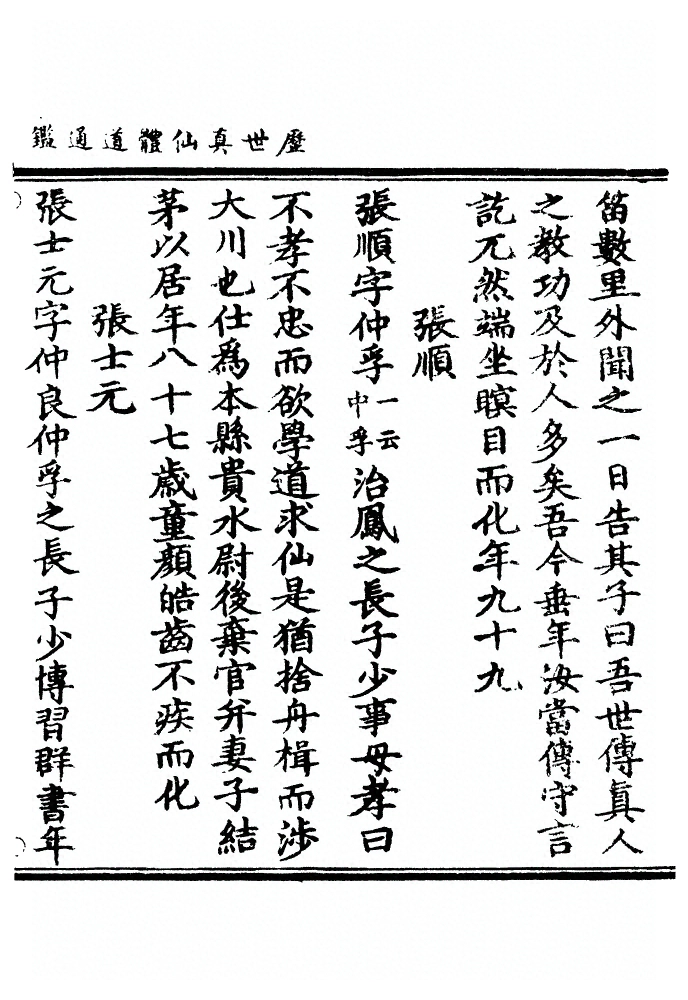 歷世真仙體道通鑑
笛數里外聞之一日告其子曰吾世傳真人
之教功及於人多矣吾今垂年汝當傳守言
訖兀然端坐瞑目而化年九十九
張順
張順字仲孚一云中孚治鳳之長子少事母孝曰
不孝不忠而欲學道求仙是猶捨舟楫而涉
大川也仕爲本縣貴水尉後棄官弁妻子結
茅以居年八十七歲童顏皓齒不疾而化
張士元
張士元字仲良仲孚之長子少博習群書年